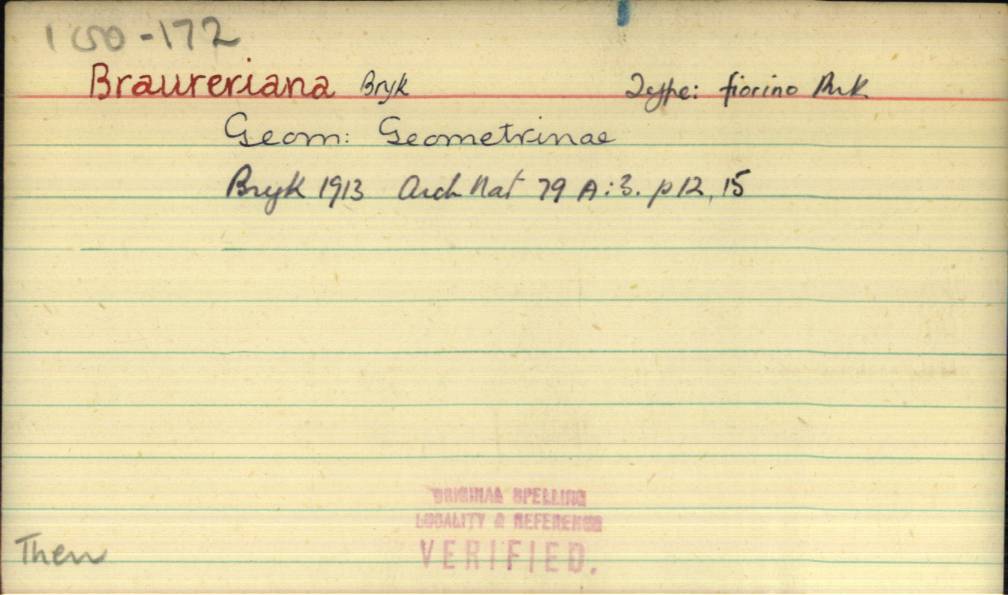 150-172
Braureriana Bryk Type: fiorino
Geom: Geometrinae
Bryk 1913 Arch Nat 79 A:3. p12, 15
ORIGINAL SPELLING
LOCALITY & REFERENCE
VERIFIED.
Then